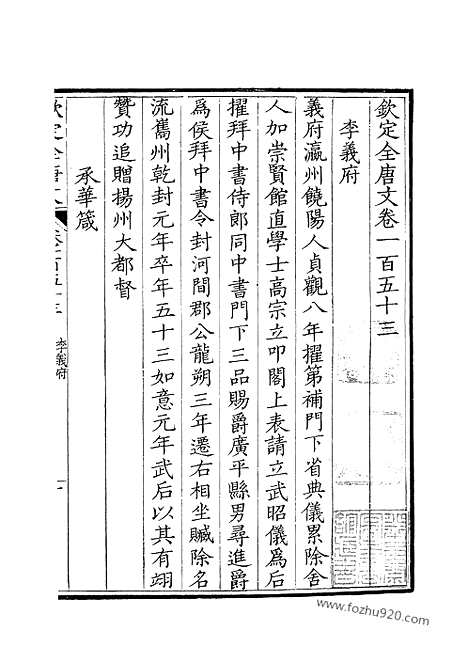 欽定全唐文卷一百五十三
李義府
義府瀛州饒陽人貞觀八年擢第補門下省典儀累除舍
人加崇賢館直學士高宗立叩閣上表請立武昭儀爲后
擢拜中書侍郎同中書門下三品賜爵廣平縣男尋進爵
爲侯拜中書令封河間郡公龍朔三年遷右相坐贓除名
流巂州乾封元年卒年五十三如意元年武后以其有翊
贊功追贈揚州大都督
承華箴
李義府
一
www.fozhu920.com